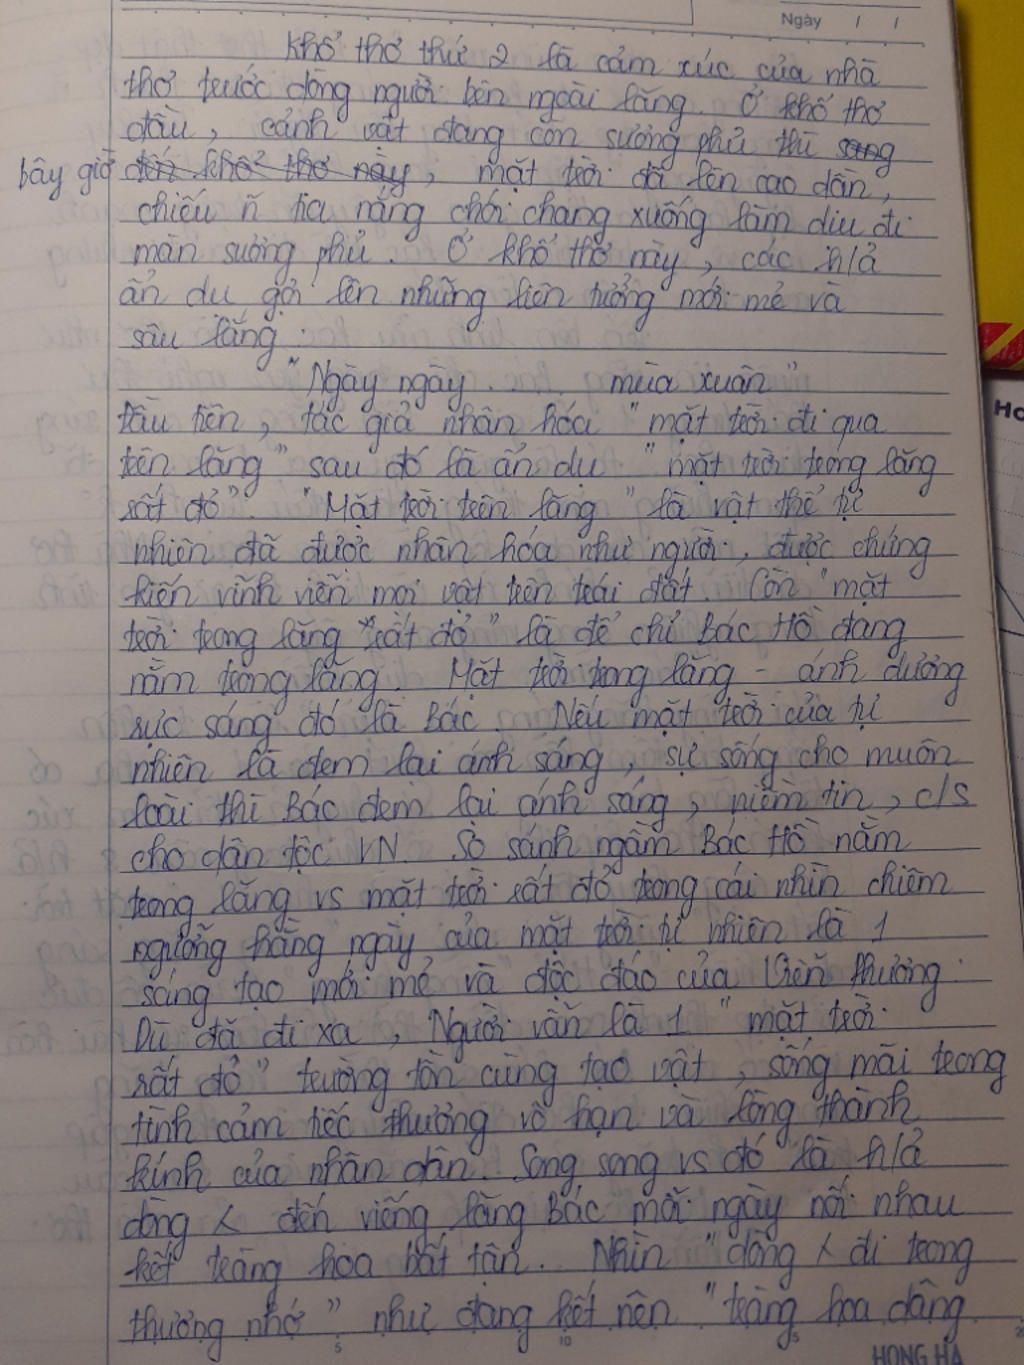 Ngày / /
Khổ thơ thứ 2 là cảm xúc của nhà
thơ trước dòng người bên ngoài lăng. Ở khổ thơ
đầu, cảnh vật đang còn sương phủ thì sang
bây giờ đến khổ thơ này, mặt trời đã lên cao dần,
chiếu ~ tia nắng chói chang xuống làm dịu đi
màn sương phủ. Ở khổ thơ này, các h/ả
ẩn dụ gợi lên những liên tưởng mới mẻ và
sâu lắng.
"Ngày ngày ... mùa xuân"
Đầu tiên, tác giả nhân hóa "mặt trời đi qua
trên lăng" sau đó là ẩn dụ "mặt trời trong lăng
rất đỏ" "Mặt trời trên lăng" là vật thể tự
nhiên đã được nhân hóa như người, được chứng
kiến vĩnh viễn mọi vật trên trái đất. Còn "mặt
trời trong lăng rất đỏ" là để chỉ Bác Hồ đang
nằm trong lăng. Mặt trời trong lăng - ánh dương
rực sáng đó là Bác. Nếu mặt trời của tự
nhiên là đem lại ánh sáng, sự sống cho muôn
loài thì Bác đem lại ánh sáng, niềm tin, c/s
cho dân tộc VN. So sánh ngầm Bác Hồ nằm
trong lăng vs mặt trời rất đỏ trong cái nhìn chiêm
ngưỡng hằng ngày của mặt trời tự nhiên là 1
sáng tạo mới mẻ và độc đáo của Viễn Phương.
Dù đã đi xa, Người vẫn là 1 "mặt trời
rất đỏ" trường tồn cùng tạo vật, sống mãi trong
tình cảm tiếc thương vô hạn và lòng thành
kính của nhân dân. Song song vs đó là h/ả
dòng ng đến viếng lăng Bác mỗi ngày nối nhau
kết tràng hoa bất tận. Nhìn "dòng ng đi trong
thương nhớ" như đang kết nên "tràng hoa dâng
5 10 5
HONG HA
Ho